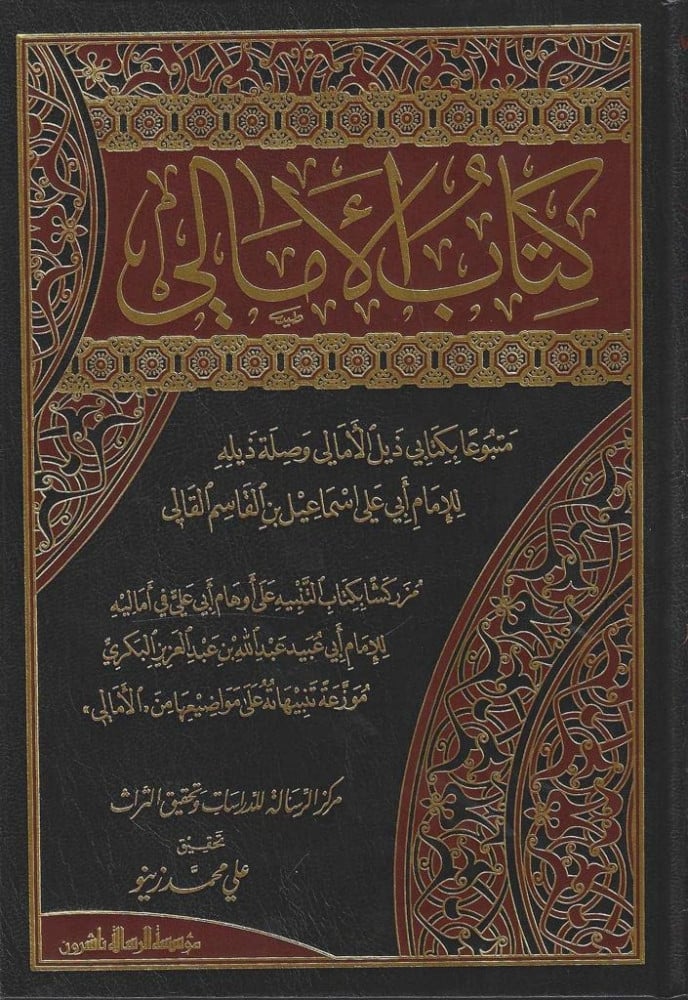 كتاب الأمالي
متبوعًا بكتابي ذيل الأمالي وصلة ذيله
للإمام أبي علي إسماعيل بن القاسم القالي
مزركشًا بكتاب التنبيه على أوهام أبي علي في أماليه
للإمام أبي عبيد عبد الله بن عبد العزيز البكري
موزعة تنبيهاته على مواضيعها من «الأمالي»
مركز الرسالة للدراسات وتحقيق التراث
تحقيق
علي محمد زينو
مؤسسة الرسالة ناشرون